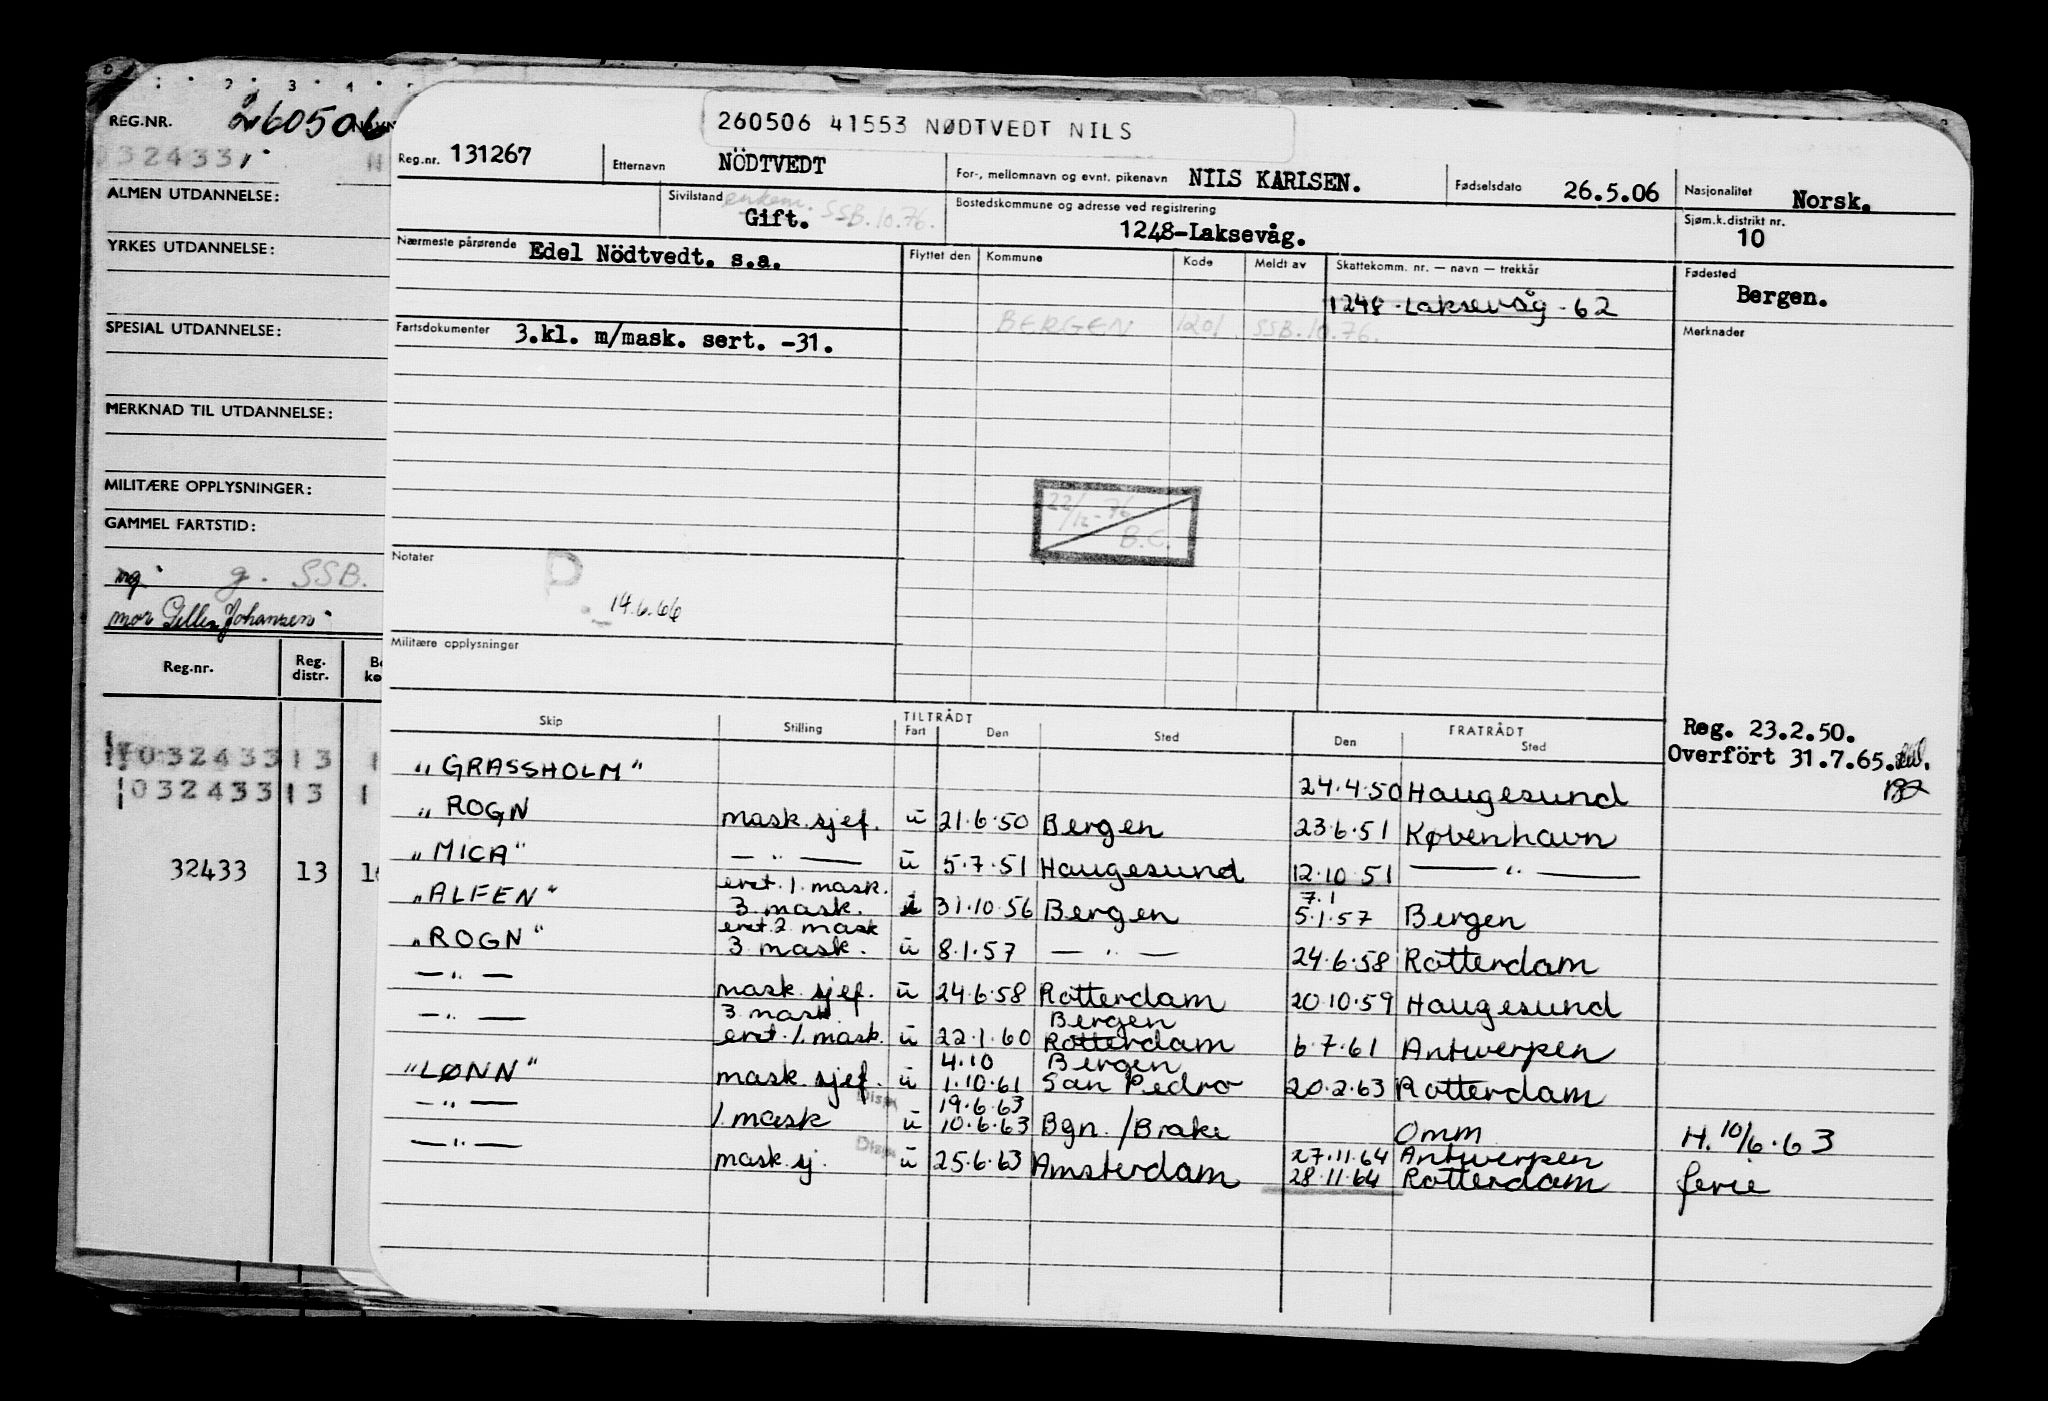 REG.NR. 260506
032433
ALMEN UTDANNELSE:
YRKES UTDANNELSE:
SPESIAL UTDANNELSE:
MERKNAD TIL UTDANNELSE:
MILITÆRE OPPLYSNINGER:
GAMMEL FARTSTID:
g. SSB.
mor Johansen
Reg.nr. Reg. distr.
032433 13
032433 13
32433 13
260506 41553 NØDTVEDT NILS
Reg.nr. 131267 Etternavn NÖDTVEDT For-, mellomnavn og evnt. pikenavn NILS KARLSEN. Fødselsdato 26.5.06 Nasjonalitet Norsk.
Sivilstand Gift. enkem. SSB.10.76. Bostedskommune og adresse ved registrering 1248-Laksevåg. Sjøm.k.distrikt nr. 10
Nærmeste pårørende Edel Nödtvedt. s.a. Flyttet den Kommune Kode Meldt av Skattekomm. nr. — navn — trekkår Fødested Bergen.
1248-Laksevåg-62
Fartsdokumenter 3.kl. m/mask. sert. -31. BERGEN 1201 SSB.10.76. Merknader
22/12-76 B.C.
Notater P. 14.6.66
Militære opplysninger
Reg. 23.2.50.
Overfört 31.7.65.
Skip Stilling TILTRÅDT Fart Den Sted FRATRÅDT Den Sted
"GRASSHOLM" 24.4.50 Haugesund
"ROGN mask.sjef. u 21.6.50 Bergen 23.6.51 København
"MICA" — " — u 5.7.51 Haugesund 12.10.51 — " —
eret. 1. mask. 7.1
"ALFEN" 3 mask. 31.10.56 Bergen 5.1.57 Bergen
eret. 2 mask
"ROGN" 3 mask. u 8.1.57 — " — 24.6.58 Rotterdam
— " — mask.sjef. u 24.6.58 Rotterdam 20.10.59 Haugesund
3 mask Bergen
— " — eret. 1. mask. u 22.1.60 Rotterdam 6.7.61 Antwerpen
4.10 Bergen
"LØNN" mask.sjef. u 1.10.61 San Pedro 20.2.63 Rotterdam
Disp 19.6.63
— " — 1. mask u 10.6.63 Bgn. /Brake Omm H. 10/6.63
Disp 27.11.64 Antwerpen
— " — mask.sj. u 25.6.63 Amsterdam 28.11.64 Rotterdam ferie